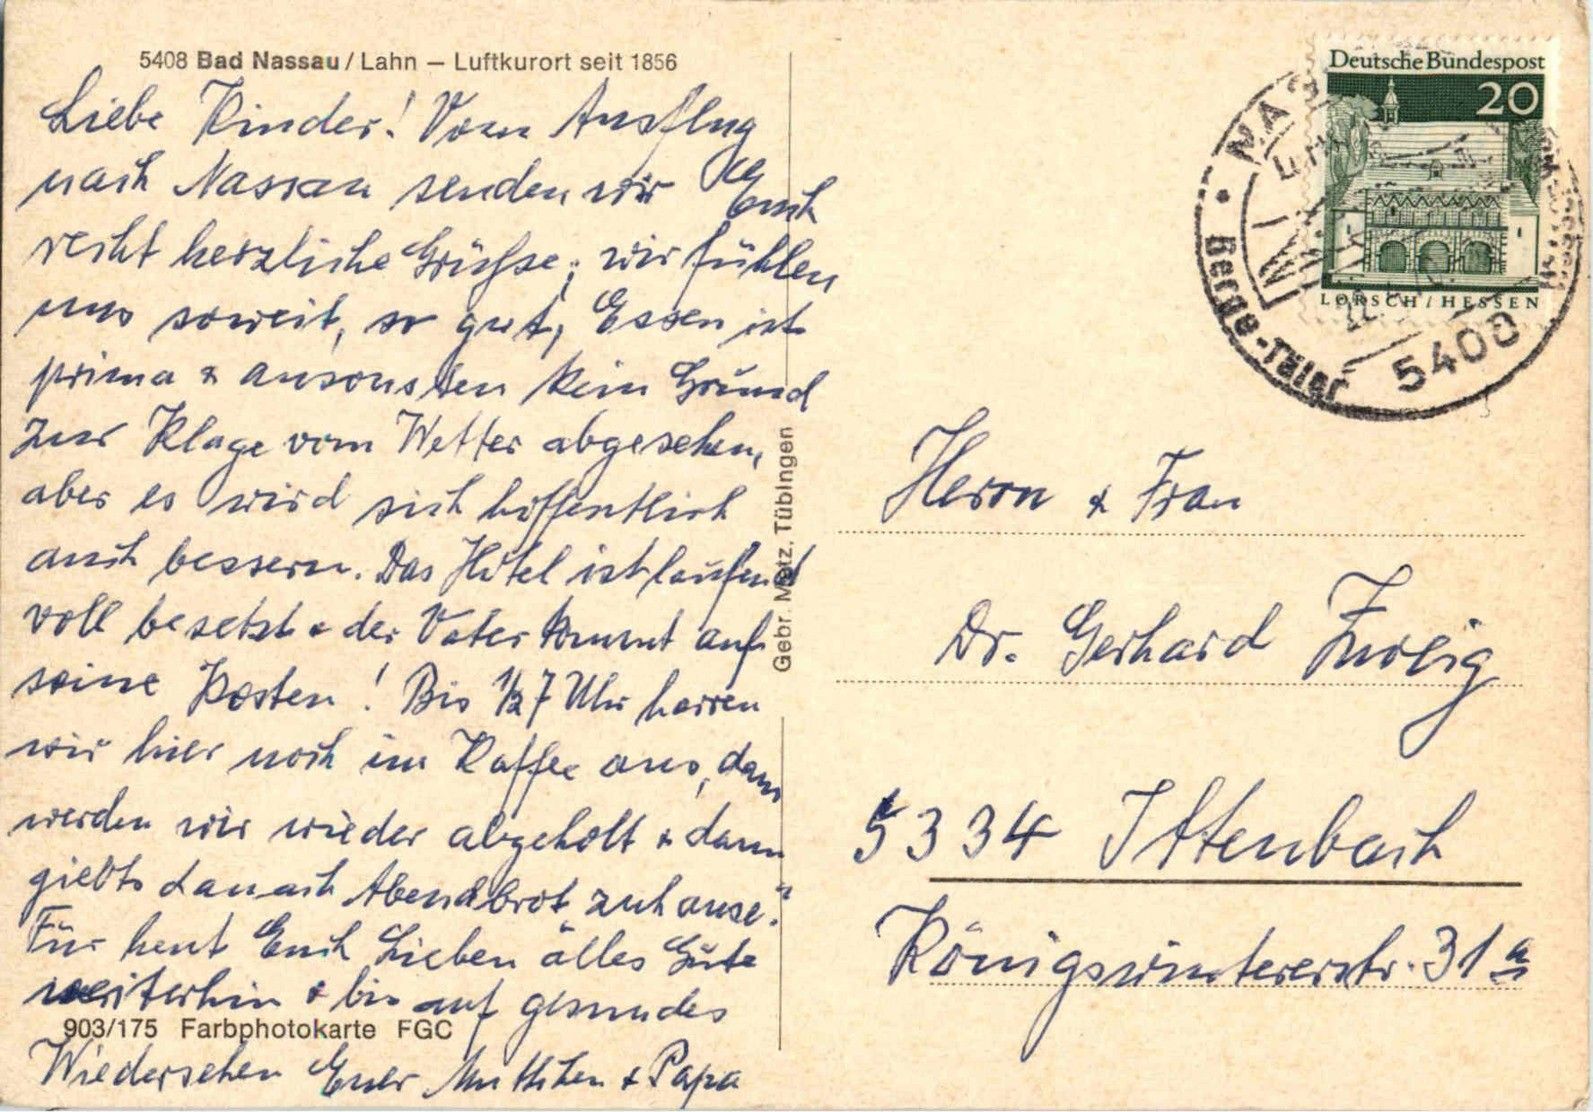 5408 Bad Nassau / Lahn – Luftkurort seit 1856
Liebe Kinder! Vom Ausflug
nach Nassau senden wir Euch
recht herzliche Grüsse; wir fühlen
uns soweit, so gut, Essen ist
prima & ansonsten kein Grund
zur Klage vom Wetter abgesehen,
aber es wird sich hoffentlich
auch bessern. Das Hotel ist laufend
voll besetzt & der Vater kommt auf
seine Kosten! Bis ½7 Uhr harren
wir hier noch im Kaffee aus, dann
werden wir wieder abgeholt & dann
giebts danach Abendbrot „zuhause."
Für heut Euch Lieben alles Gute
weiterhin & bis auf gesundes
903/175 Farbphotokarte FGC
Wiedersehen Euer Muttchen & Papa
Gebr. Metz, Tübingen
Deutsche Bundespost
20
LORSCH / HESSEN
Berge - Täler
5408
Herrn & Frau
Dr. Gerhard Zweig
5334 Ittenbach
Königswintererstr. 31a